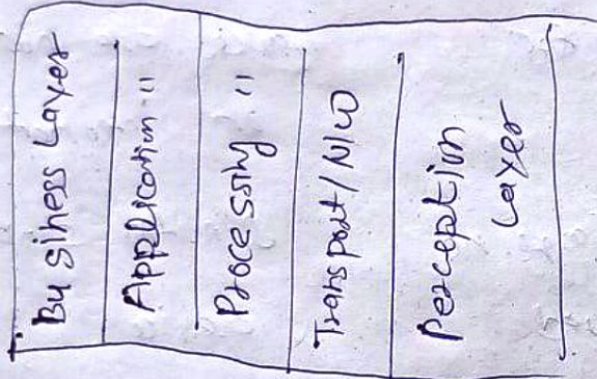 Business Layer
Application "
Processing "
Transport/N/W
Perception
Layer